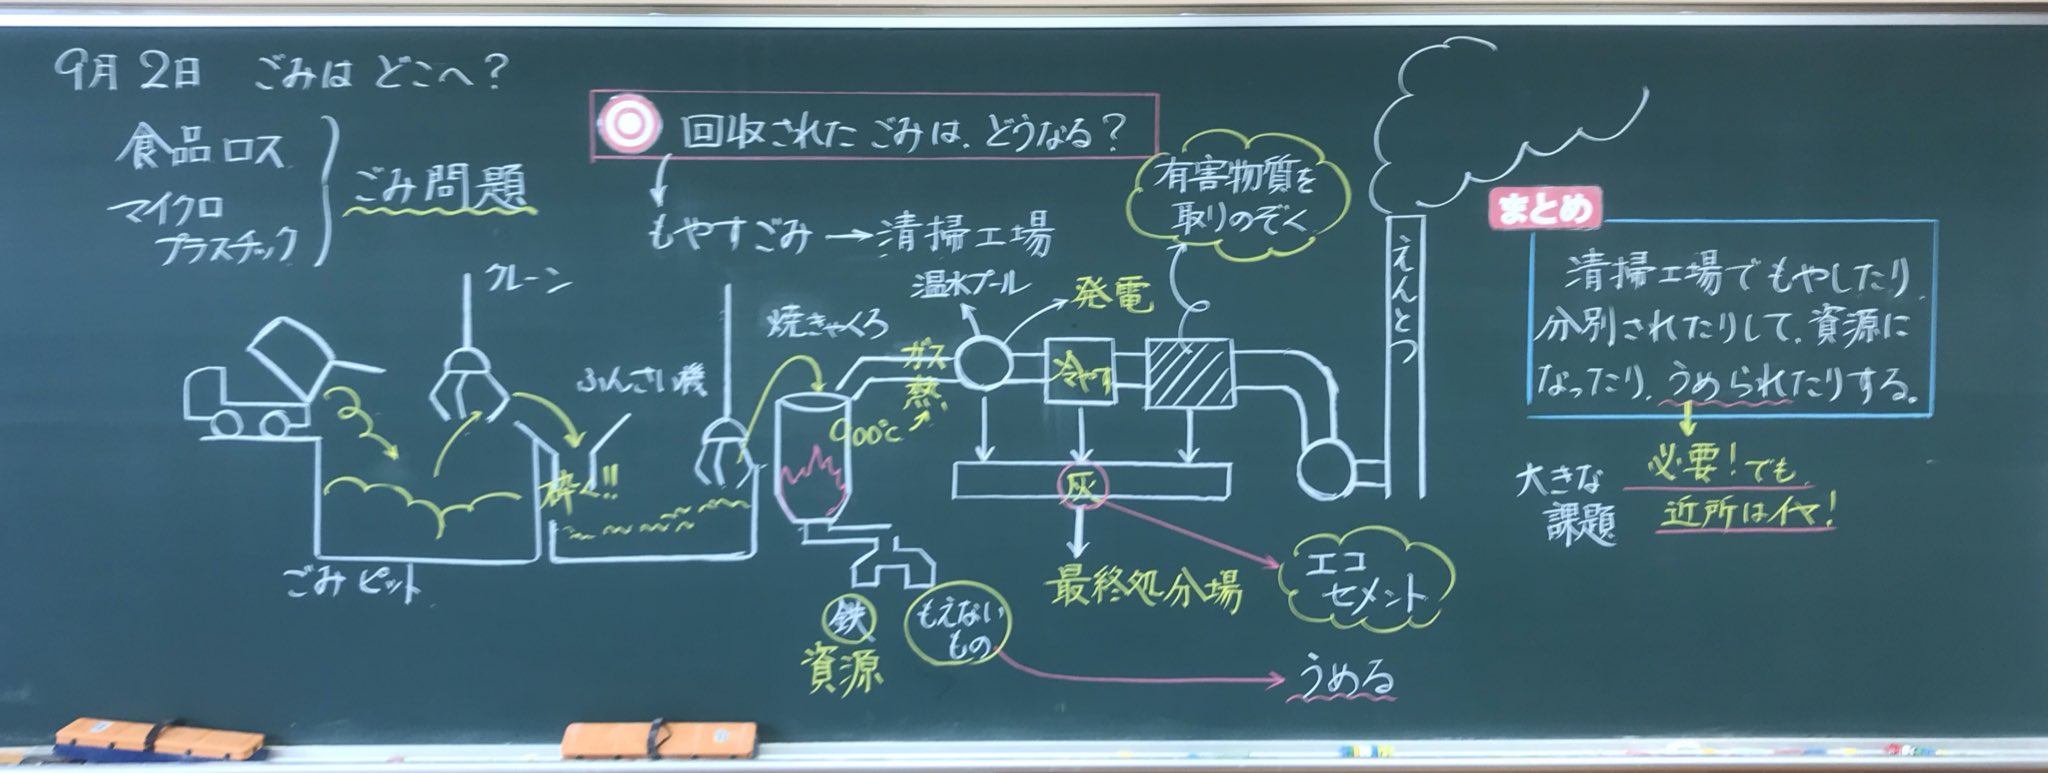 9月2日 ごみは どこへ?
食品ロス
マイクロ
プラスチック
ごみ問題
回収された ごみは、どうなる?
もやすごみ→清掃工場
クレーン
ふんさい機
砕く!!
ごみピット
焼きゃくろ
900℃
ガス
熱
温水プール
発電
冷やす
有害物質を
取りのぞく
えんとつ
灰
鉄
資源
もえない
もの
最終処分場
エコ
セメント
うめる
まとめ
清掃工場でもやしたり
分別されたりして、資源に
なったり、うめられたりする。
大きな
課題
必要!でも
近所はイヤ!